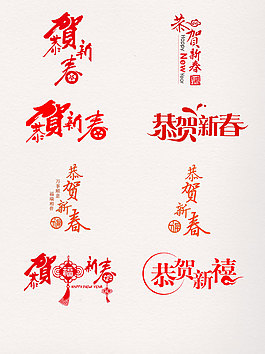 恭賀新春
恭贺新春
HAPPY NEW YEAR
恭賀新春
恭贺新春
恭贺新春
万事如意
恭贺新春
恭賀新春
HAPPY NEW YEAR
恭贺新禧